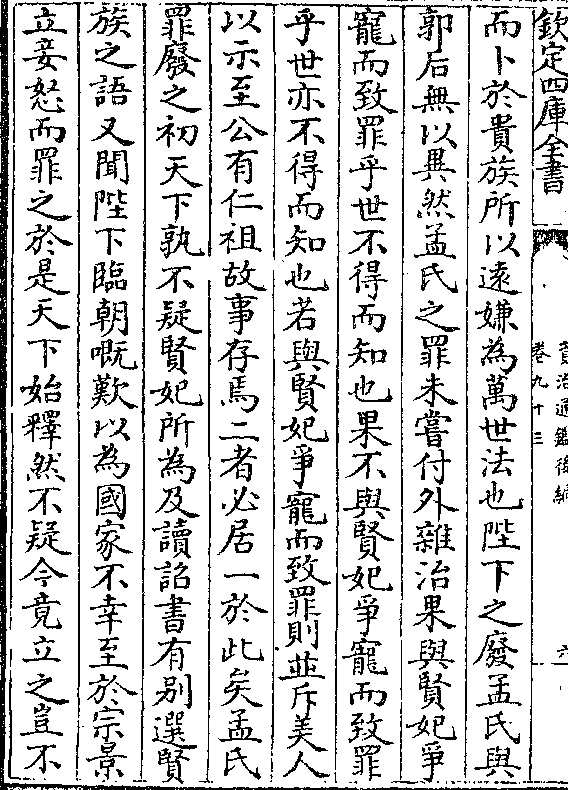 欽定四庫全書
資治通鑑後編
卷九十三
六
而卜於貴族所以遠嫌為萬世法也陛下之廢孟氏與
郭后無以異然孟氏之罪未嘗付外雜治果與賢妃爭
寵而致罪乎世不得而知也果不與賢妃爭寵而致罪
乎世亦不得而知也若與賢妃爭寵而致罪則並斥美人
以示至公有仁祖故事存焉二者必居一於此矣孟氏
罪廢之初天下孰不疑賢妃所為及讀詔書有别選賢
族之語又聞陛下臨朝嘅歎以為國家不幸至於宗景
立妾怒而罪之於是天下始釋然不疑今竟立之豈不